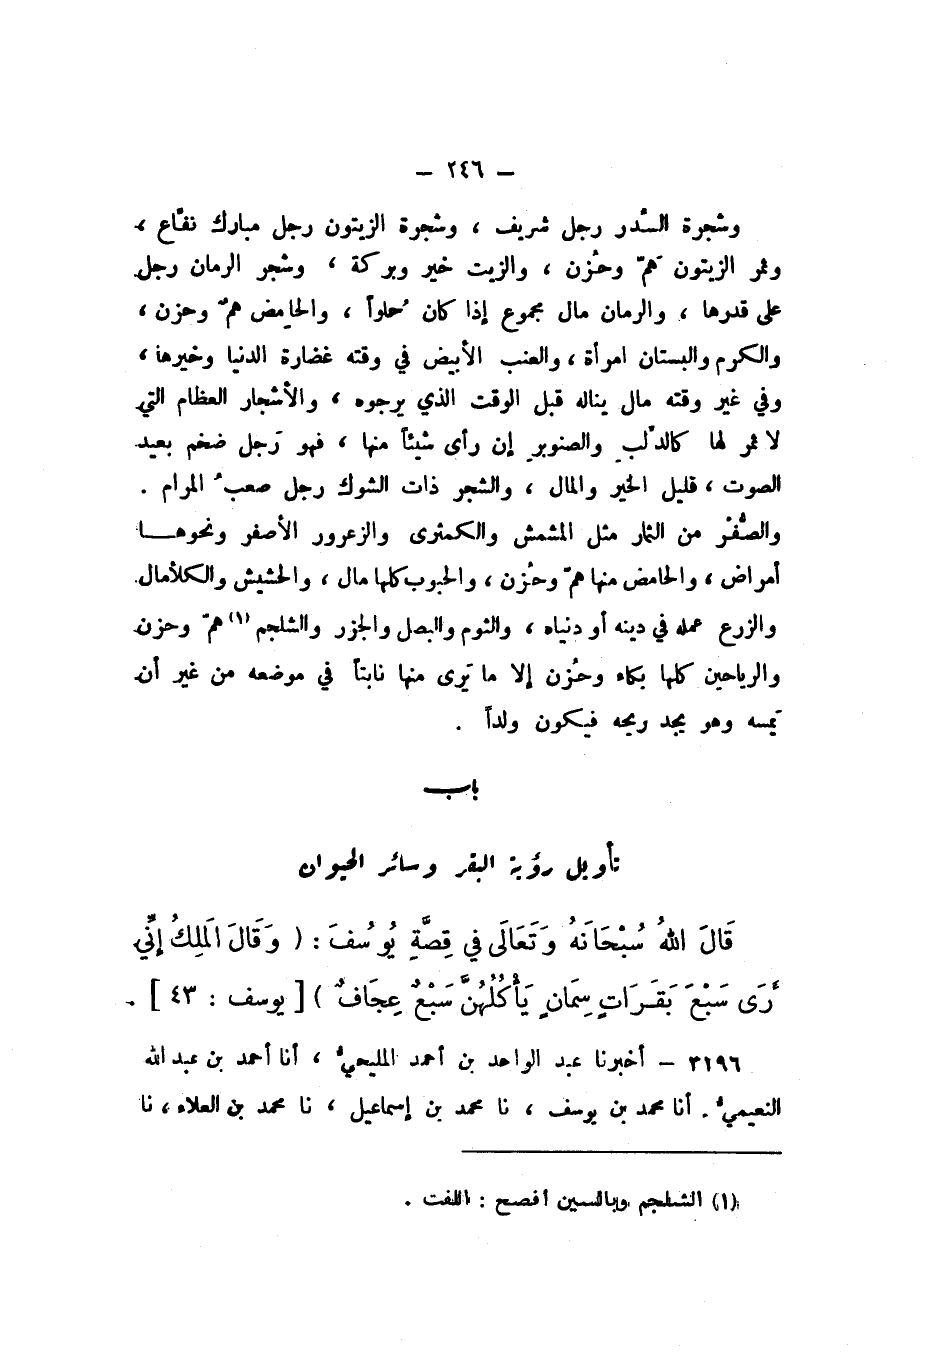 – ٢٤٦ –
وشجرة السِّدر رجل شريف ، وشجرة الزيتون رجل مبارك نفّاع ،
وثمر الزيتون همّ وحُزن ، والزيت خير وبركة ، وشجر الرمان رجل
على قدرها ، والرمان مال مجموع إذا كان حُلواً ، والحامض همّ وحزن ،
والكرم والبستان امرأة ، والعنب الأبيض في وقته غضارة الدنيا وخيرها ،
وفي غير وقته مال يناله قبل الوقت الذي يرجوه ، والأشجار العظام التي
لا ثمر لها كالدُّلبِ والصنوبرِ إن رأى شيئاً منها ، فهو رَجل ضخم بعيد
الصوت ، قليل الخير والمال ، والشجر ذات الشوك رجل صعبُ المرام .
والصُّفْر من الثمار مثل المشمش والكمثرى والزعرور الأصفر ونحوهـــا
أمراض ، والحامض منها همّ وحُزن ، والحبوب كلها مال ، والحشيش والكلأمال
والزرع عمله في دينه أو دنياه ، والثوم والبصل والجزر والشلجم (١) همّ وحزن
والرياحين كلها بكاء وحُزن إلا ما يَرى منها نابتاً في موضعه من غير أن
يَمسه وهو يجد ريحه فيكون ولداً .
باب
تأويل رؤية البقر وسائر الحيوان
قَالَ اللهُ سُبْحَانَهُ وَتَعَالَى فِي قِصَّةِ يُوسُفَ : ( وَقَالَ الْمَلِكُ إِنِّي
أَرَى سَبْعَ بَقَرَاتٍ سِمَانٍ يَأْكُلُهُنَّ سَبْعٌ عِجَافٌ ) [ يوسف : ٤٣ ] .
٣١٩٦ – أخبرنا عبد الواحد بن أحمد المليحيُّ ، أنا أحمد بن عبد الله
النعيميُّ . أنا محمد بن يوسف ، نا محمد بن إسماعيل ، نا محمد بن العلاء ، نا
(١) الشلجم وبالسين أفصح : اللفت .